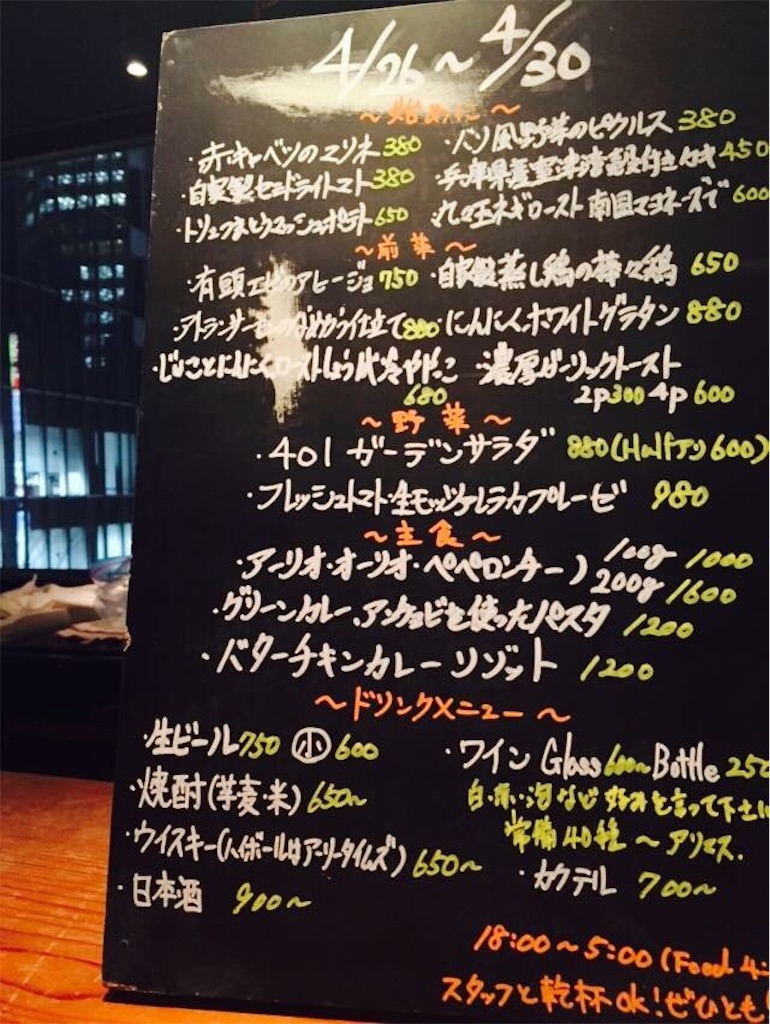 4/26～4/30
～始めに～
・赤キャベツのマリネ 380
・パリ風野菜のピクルス 380
・自家製セミドライトマト 380
・兵庫県産室津湾殻付きカキ 450
・トリュフまとうマッシュポテト 650
・丸々玉ネギロースト 南国マヨネーズで 600
～前菜～
・有頭エビのアヒージョ 750
・自家製蒸し鶏の棒々鶏 650
仕立て 880
・にんにくホワイトグラタン 880
・じゃことにんにくローストしょう油冷ややっこ
680
・濃厚ガーリックトースト
2p 300 4p 600
～野菜～
・401ガーデンサラダ 880 (Halfアリ 600)
・フレッシュトマト・生モッツァレラカプレーゼ 980
～主食～
・アーリオ・オーリオ・ペペロンチーノ 100g 1000
200g 1600
・グリーンカレー、アンチョビを使ったパスタ 1200
・バターチキンカレーリゾット 1200
～ドリンクメニュー～
・生ビール 750 小 600
・ワイン Glass 600～ Bottle 250
白・赤・泡など好みを言って下さい
常備40種～アリマス.
・焼酎(芋・麦・米) 650～
・ウイスキー(ハイボールはアーリータイムズ) 650～
・カクテル 700～
・日本酒 900～
18:00～5:00 (Food 4:
スタッフと乾杯ok!ぜひとも!